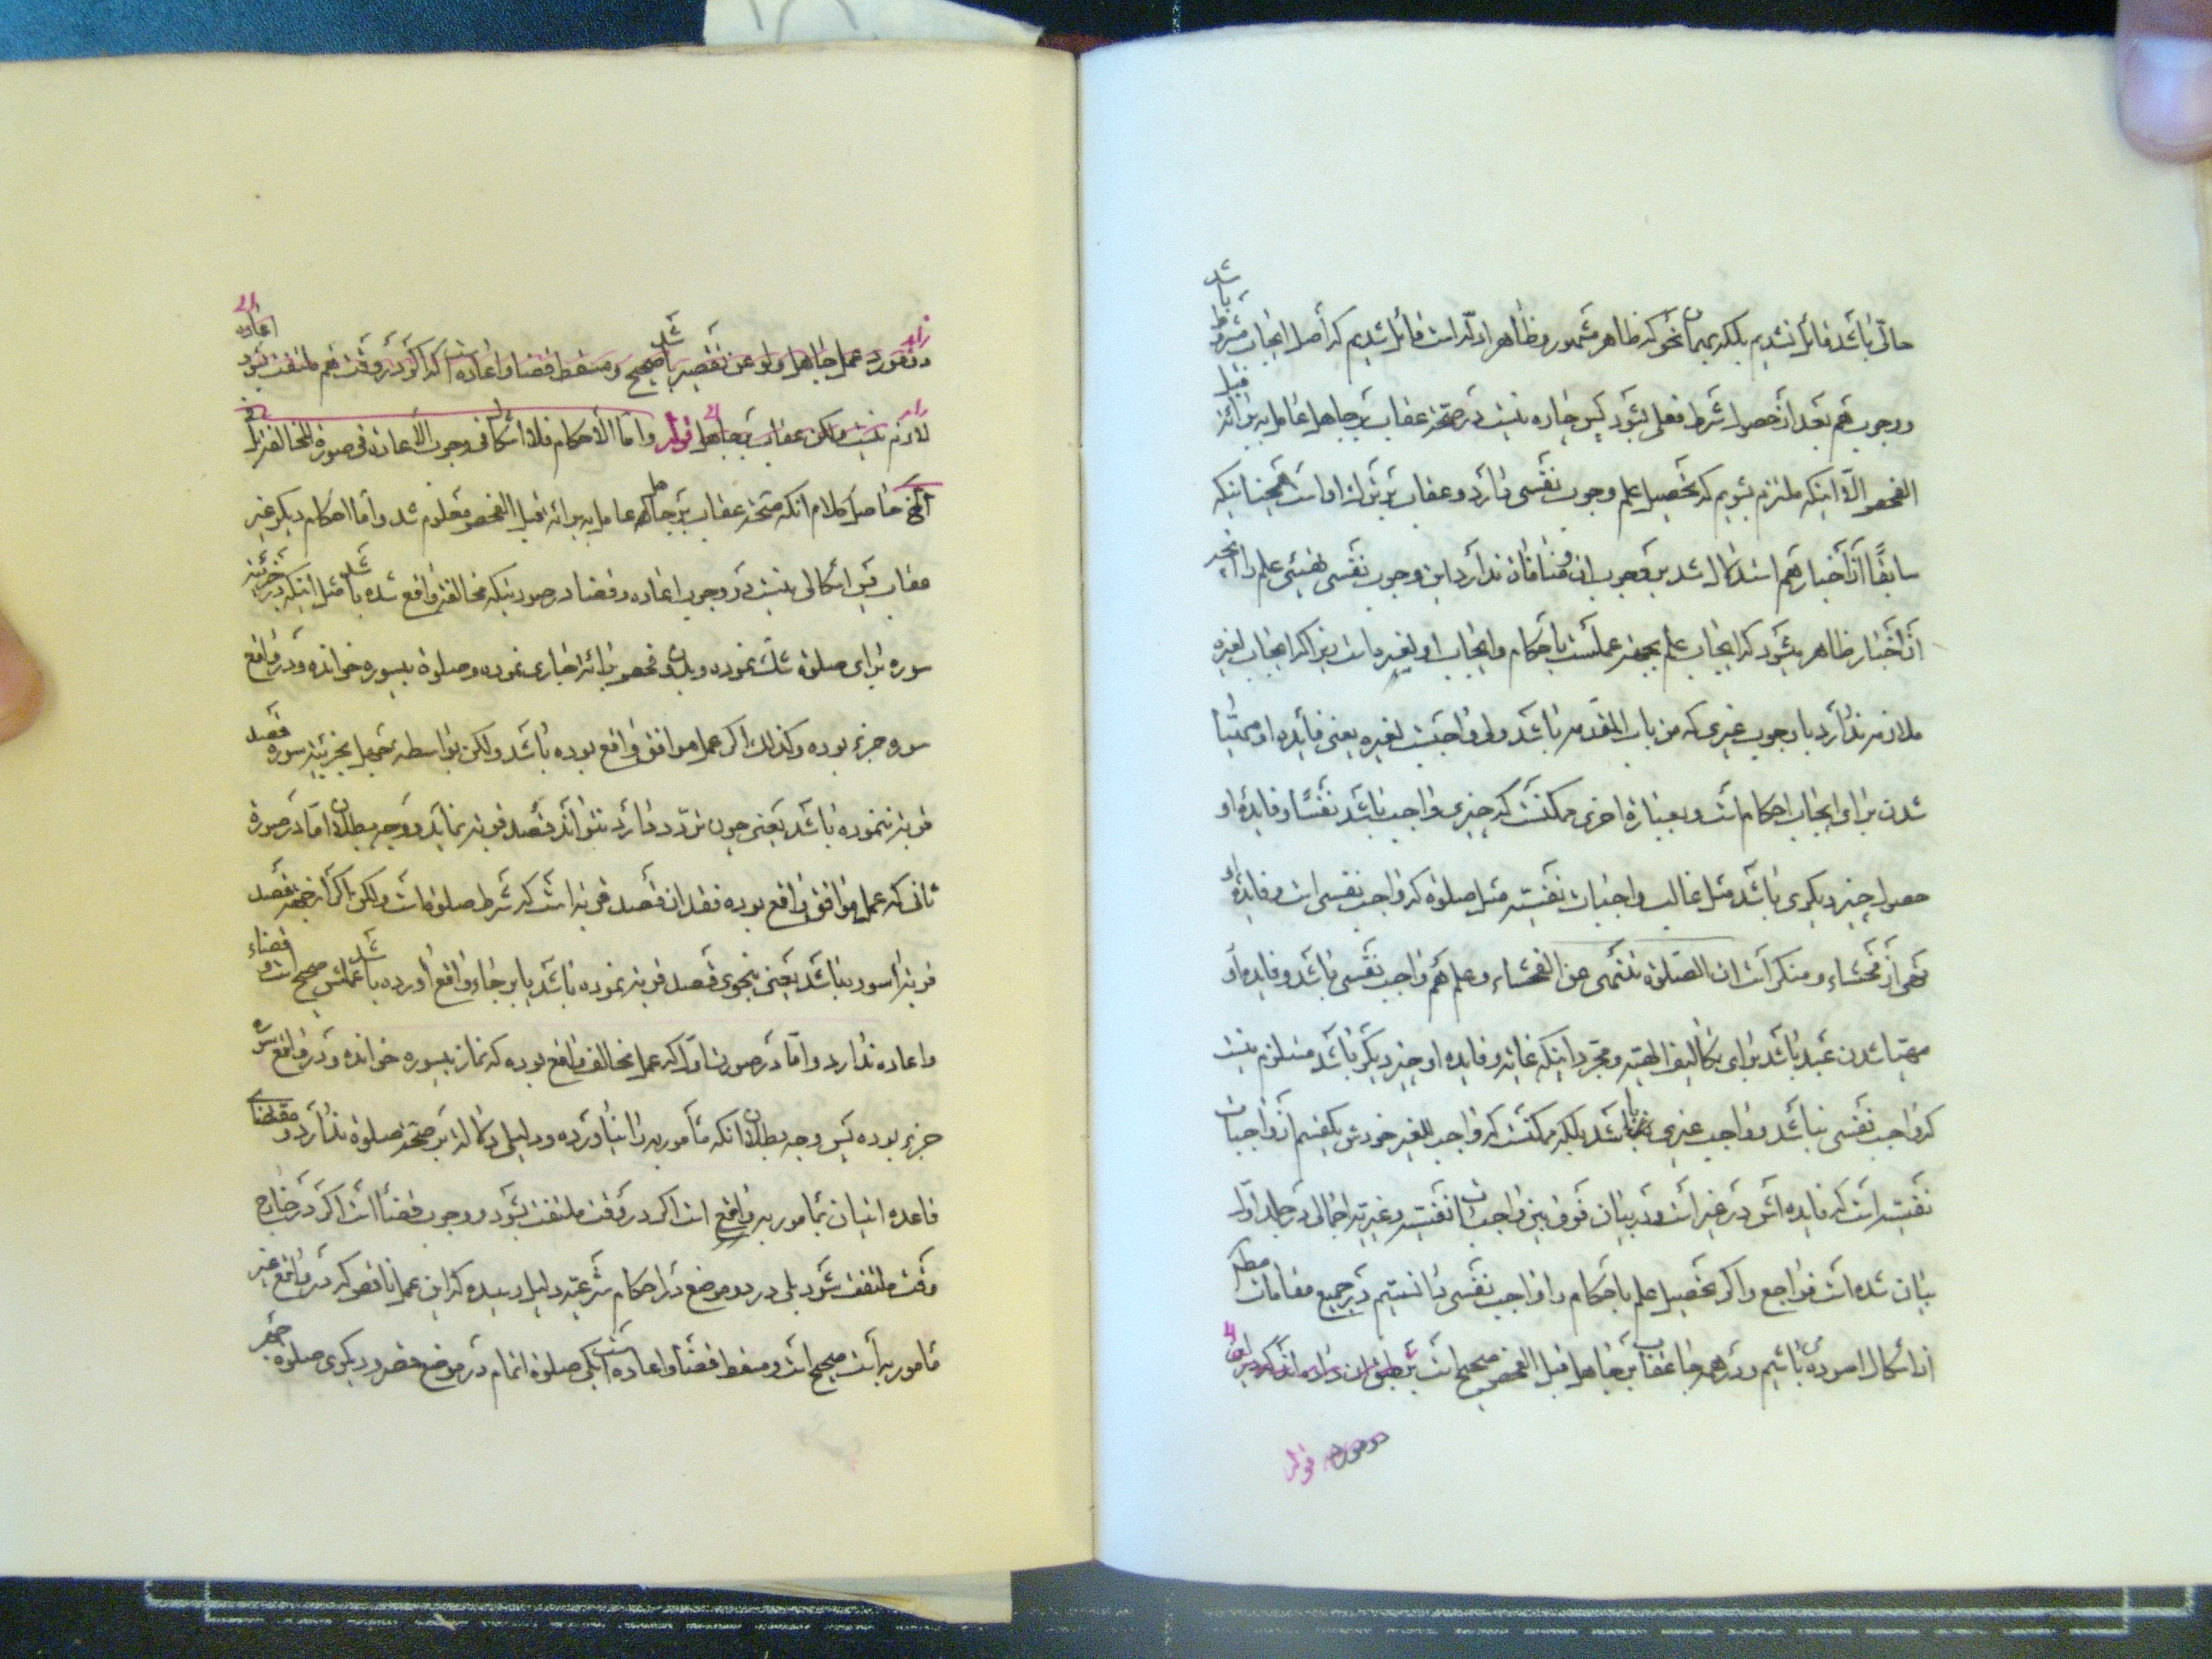 حالّی باشد قائل نشدیم بلکه بهمان نحو که ظاهر مشهور و ظاهر ادلّه است قائل شدیم که اصل ایجاب مشروط باشد
و وجوب هم بعد از حصول شرط فعلی بشود پس چاره نیست در صحّة عقاب بر جاهل عامل به برائة قبل
الفحص الّا اینکه ملتزم بشویم که تحصیل علم وجوب نفسی دارد و عقاب بر ترك او است همچنانکه
سابقًا از اخبار هم استدلال شد بر وجوب ان و منافات ندارد این وجوب نفسی تهیّئی علم با انچه
از اخبار ظاهر بشود که ایجاب علم بجهة عملست باحکام و ایجاب او لغیره است زیرا که ایجاب لغیره
ملازمه ندارد با وجوب غیری که من باب المقدّمه باشد ولی واجبست لغیره یعنی فایده او مهیّا
شدن برای ایجاب احکام است و بعبارة اخری ممکنست که چیزی واجب باشد نفسًا و فایده او
حصول چیز دیگری باشد مثل غالب واجبات نفسیّه مثل صلوة که واجب نفسی است و فایده او
نهی از فحشاء و منکر است ان الصّلوة تنهی عن الفحشاء و علم هم واجب نفسی باشد و فایده او
مهیّا شدن عبد باشد برای تکالیف الهیّه و مجرّد اینکه غایة و فایده او چیز دیگر باشد مستلزم نیست
که واجب نفسی نباشد و واجب غیری باشد بلکه ممکنست که واجب للغیر خودش یکقسم از واجبات
نفسیّه است که فایده اش در غیر است و در بیان فرق بین واجبات نفسیّه و غیریّه اجمالی در جلد اوّل
بیان شده است فراجع و اگر تحصیل علم باحکام را واجب نفسی دانستیم در جمیع مقامات مطلقه
از اشکال اسوده باشیم و در همه جا عقاب بر جاهل قبل الفحص صحیح است
دو مورد قوله
در تقویت عمل جاهل ولو عن تقصیر باشد صحیح و مسقط قضا و اعاده است که اگر در وقت هم ملتفت شود اعاده
لازم نیست ولکن عقاب بر جاهل قوله و امّا الاحکام فلا اشکال فی وجوب الاعادة فی صورة المخالفة
الخ حاصل کلام انکه صحّة عقاب بر جاهل عامل به برائة قبل الفحص معلوم شد و امّا احکام دیگر غیر
عقاب پس اشکالی نیست در وجوب اعاده و قضا در صورتیکه مخالفة واقع شده باشد مثل اینکه در جزئیّة
سوره برای صلوة شك نموده و بدون فحص برائة جاری نموده و صلوة بیسوره خوانده و در واقع
سوره جزء بوده و کذلك اگر عمل موافق واقع بوده باشد ولکن بواسطه جهل بجزئیّة سوره قصد
قربة ننموده باشد یعنی چون تردّد دارد نتواند قصد قربة نماید و وجه بطلان امّا در صورة
ثانی که عمل موافق واقع بوده فقدان قصد قربة است که شرط صلوة است ولکن اگر از جهة قصد
قربة اسوده باشد یعنی بنحوی قصد قربة نموده باشد یا برجاء واقع اورده باشد عملش صحیح است و قضاء
و اعاده ندارد و امّا در صورت اوّل که عمل مخالف واقع بوده که نماز بیسوره خوانده و در واقع سوره
جزء بوده پس وجه بطلان انکه مأمور به را نیاورده و دلیلی دلالة بر صحّة صلوة ندارد و مقتضای
قاعده اتیان بمأمور به واقع است اگر در وقت ملتفت بشود و وجوب قضا است اگر در خارج
وقت ملتفت شود بلی در دو موضع در احکام شرعیّه دلیل رسیده که این عمل ناقص که در واقع غیر
مأمور به است صحیح است و مسقط قضا و اعاده است یکی صلوة اتمام در موضع قصر و دیگری صلوة جهر